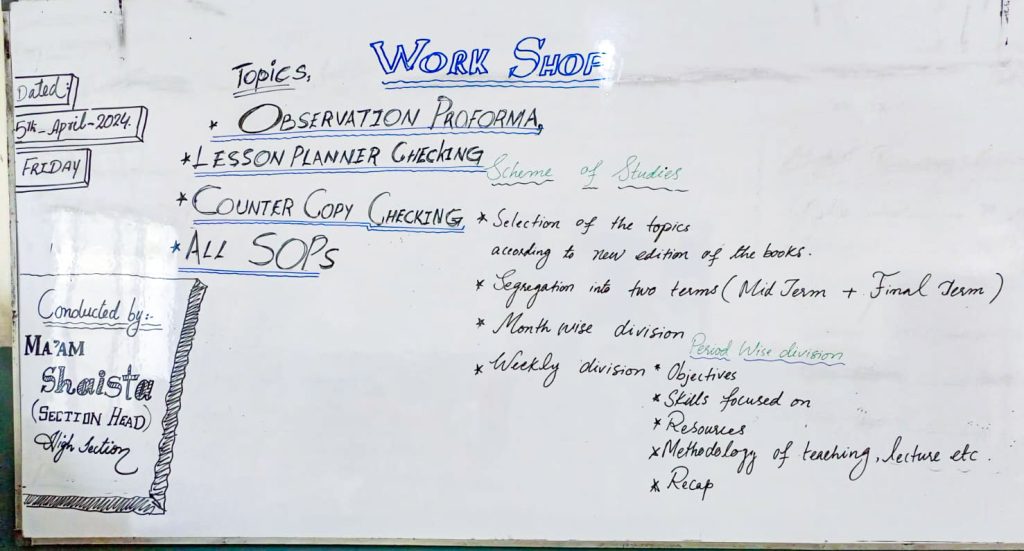 WORK SHOP
Dated:
5th-April-2024.
FRIDAY
Topics,
* OBSERVATION PROFORMA,
* LESSON PLANNER CHECKING
* COUNTER COPY CHECKING
* ALL SOPs
Conducted by:-
MA'AM
Shaista
(SECTION HEAD)
High Section
Scheme of Studies
* Selection of the topics
according to new edition of the books.
* Segregation into two terms (Mid Term + Final Term)
* Month wise division
* Weekly division
Period Wise division
* Objectives
* Skills focused on
* Resources
* Methodology of teaching, lecture etc.
* Recap